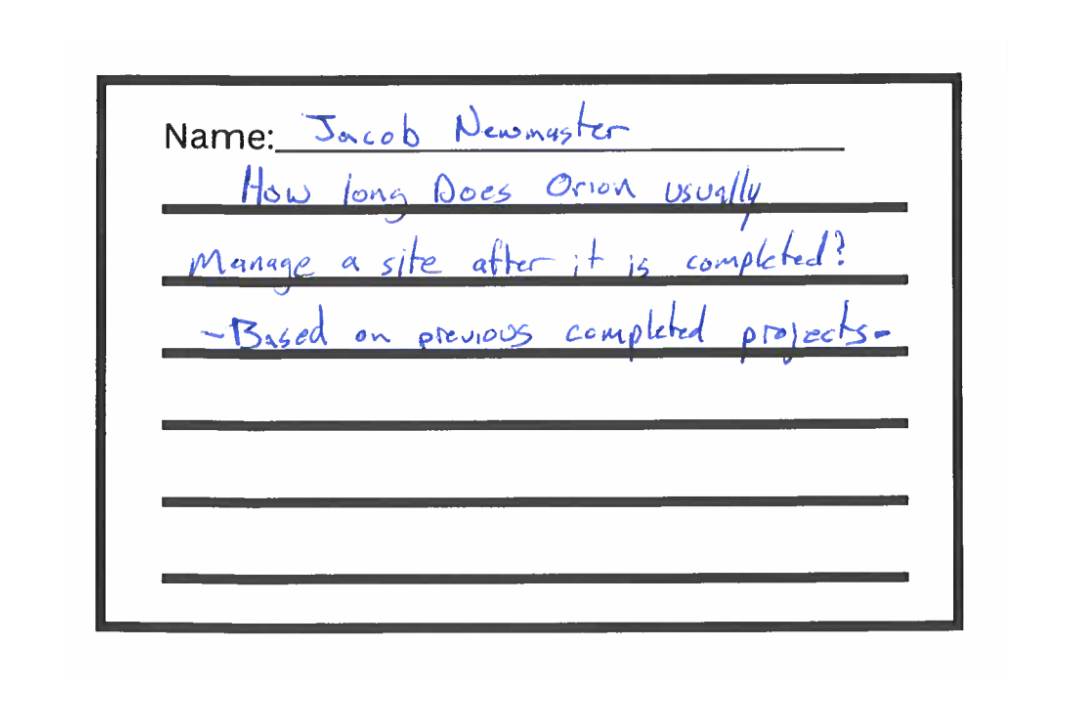 Name: Jacob Newmaster
How long Does Orion usually
Manage a site after it is completed?
-Based on previous completed projects-